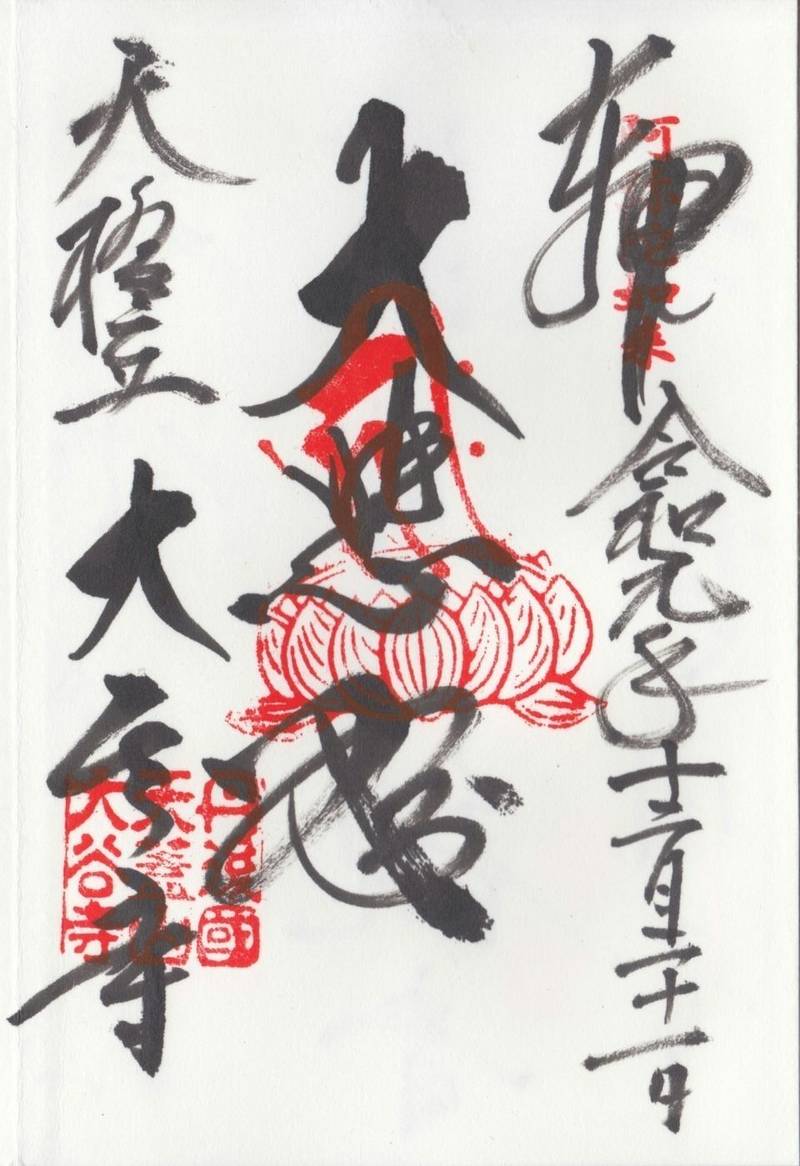 奉拝
令和元年十二月二十一日
大悲殿
天橋立 大谷寺
丹後國
大谷寺